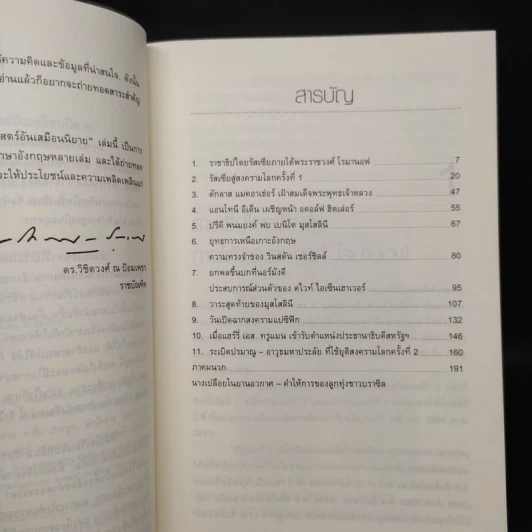 ความคิดและข้อมูลที่น่าสนใจ. ดังนั้น
อ่านแล้วก็อยากจะถ่ายทอดสาระสำคัญ
ตร์อันเสมือนนิยาย" เล่มนี้ เป็นการ
ภาษาอังกฤษหลายเล่ม และได้ถ่ายทอด
จะให้ประโยชน์และความเพลิดเพลินแก่
ดร.วิชิตวงศ์ ณ ป้อมเพชร
ราชบัณฑิต
สารบัญ
1. ราชาธิปไตยรัสเซียภายใต้พระราชวงศ์ โรมานอฟ 7
2. รัสเซียสู่สงครามโลกครั้งที่ 1 20
3. ดักลาส แมคอาเธอร์ เฝ้าสมเด็จพระพุทธเจ้าหลวง 47
4. แอนโทนี อีเด็น เผชิญหน้า อดอล์ฟ ฮิตเล่อร์ 55
5. ปรีดี พนมยงค์ พบ เบนิโต มุสโสลินี 67
6. ยุทธการเหนือเกาะอังกฤษ
ความทรงจำของ วินสตัน เชอร์ชิลล์ 80
7. ยกพลขึ้นบกที่นอร์มังดี
ประสบการณ์ส่วนตัวของ ดไวท์ ไอเซ็นฮาเวอร์ 95
8. วาระสุดท้ายของมุสโสลินี 107
9. วันเปิดฉากสงครามแปซิฟิก 132
10. เมื่อแฮร์รี่ เอส. ทรูแมน เข้ารับตำแหน่งประธานาธิบดีสหรัฐฯ 146
11. ระเบิดปรมาณู – อาวุธมหาประลัย ที่ใช้ยุติสงครามโลกครั้งที่ 2 160
ภาคผนวก 191
นางเปลือยในยานอวกาศ – คำให้การของลูกทุ่งชาวบราซิล